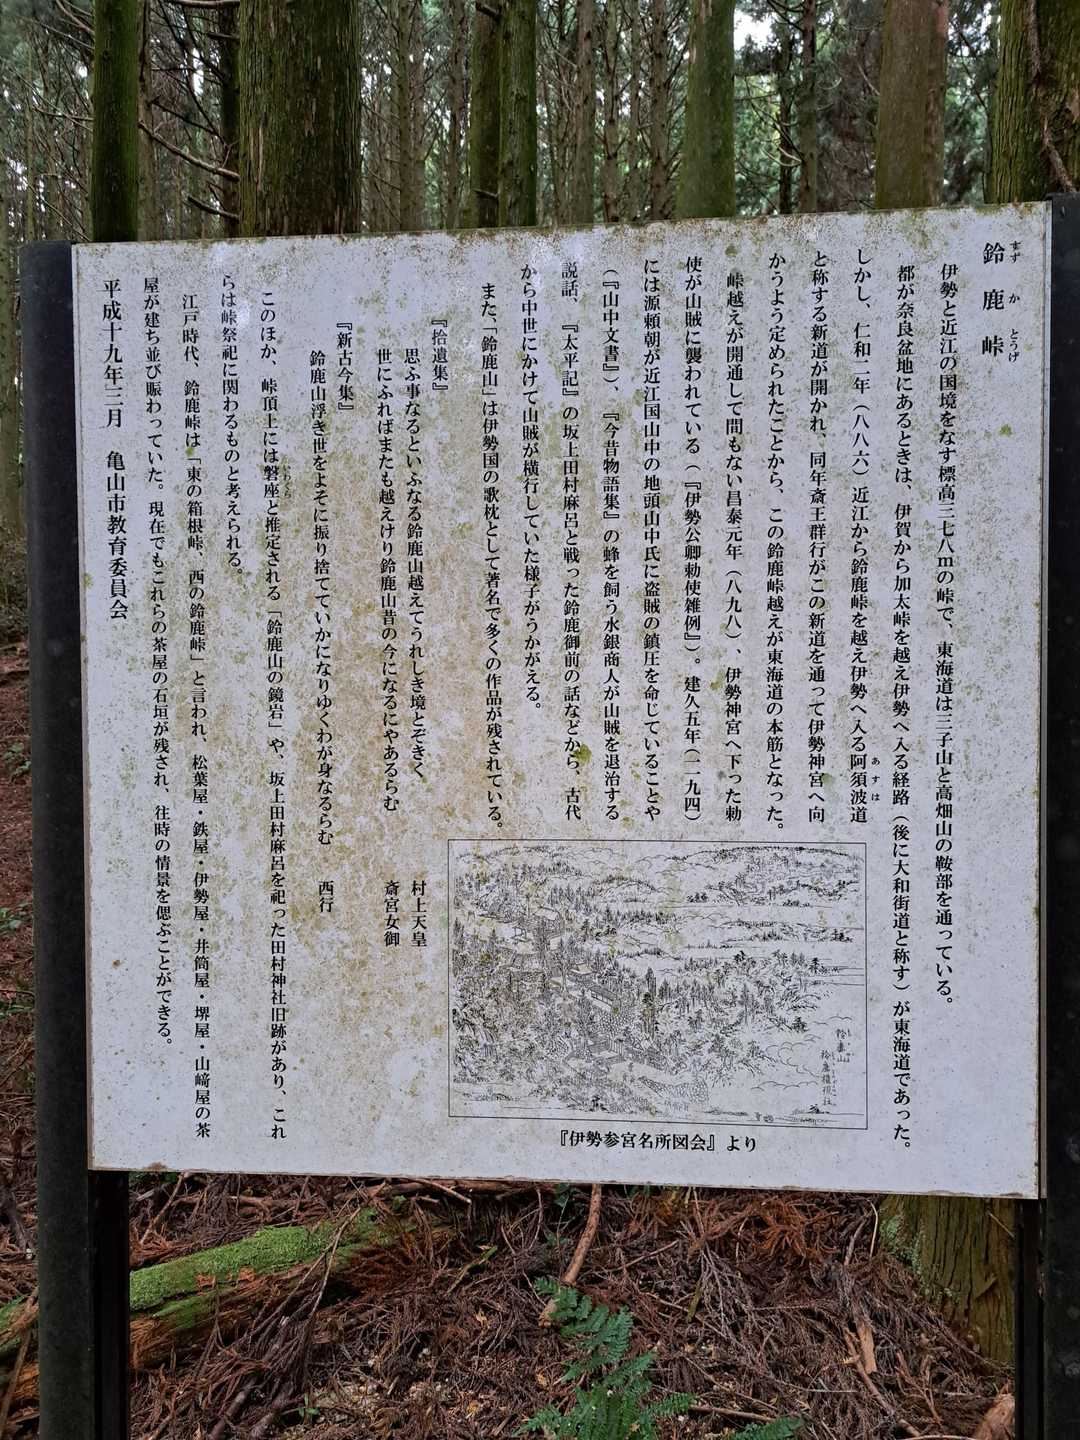 鈴鹿峠
すずかとうげ
伊勢と近江の国境をなす標高三七八ｍの峠で、東海道は三子山と高畑山の鞍部を通っている。
都が奈良盆地にあるときは、伊賀から加太峠を越え伊勢へ入る経路（後に大和街道と称す）が東海道であった。
しかし、仁和二年（八八六）近江から鈴鹿峠を越え伊勢へ入る阿須波道
あすは
と称する新道が開かれ、同年斎王群行がこの新道を通って伊勢神宮へ向
かうよう定められたことから、この鈴鹿峠越えが東海道の本筋となった。
峠越えが開通して間もない昌泰元年（八九八）、伊勢神宮へ下った勅
使が山賊に襲われている（『伊勢公卿勅使雑例』）。建久五年（一一九四）
には源頼朝が近江国山中の地頭山中氏に盗賊の鎮圧を命じていることや
（『山中文書』）、『今昔物語集』の蜂を飼う水銀商人が山賊を退治する
説話、『太平記』の坂上田村麻呂と戦った鈴鹿御前の話などから、古代
から中世にかけて山賊が横行していた様子がうかがえる。
また、「鈴鹿山」は伊勢国の歌枕として著名で多くの作品が残されている。
『拾遺集』
思ふ事なるといふなる鈴鹿山越えてうれしき境とぞきく　村上天皇
世にふればまたも越えけり鈴鹿山昔の今になるにやあるらむ　斎宮女御
『新古今集』
鈴鹿山浮き世をよそに振り捨てていかになりゆくわが身なるらむ　西行
このほか、峠頂上には磐座と推定される「鈴鹿山の鏡岩」や、坂上田村麻呂を祀った田村神社旧跡があり、これ
いわくら
らは峠祭祀に関わるものと考えられる。
江戸時代、鈴鹿峠は「東の箱根峠、西の鈴鹿峠」と言われ、松葉屋・鉄屋・伊勢屋・井筒屋・堺屋・山﨑屋の茶
屋が建ち並び賑わっていた。現在でもこれらの茶屋の石垣が残され、往時の情景を偲ぶことができる。
平成十九年三月　亀山市教育委員会
鈴鹿山
鈴鹿権現社
『伊勢参宮名所図会』より